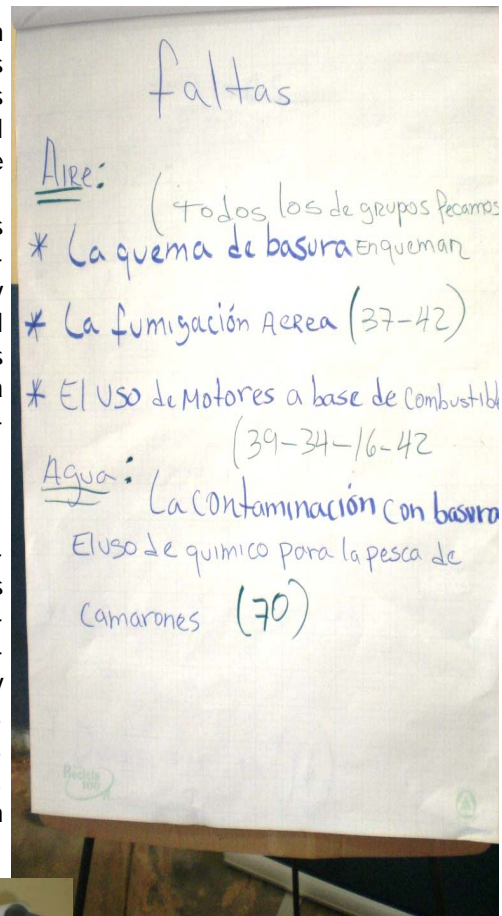 faltas
Aire:
(Todos los de grupos Pecamos
* La quema de basura Enqueman
* La fumigación Aerea (37-42)
* El uso de Motores a base de Combustibl
(39-34-16-42
Agua:
La contaminación con basura
El uso de quimico para la pesca de
camarones (70)
Recicla
100